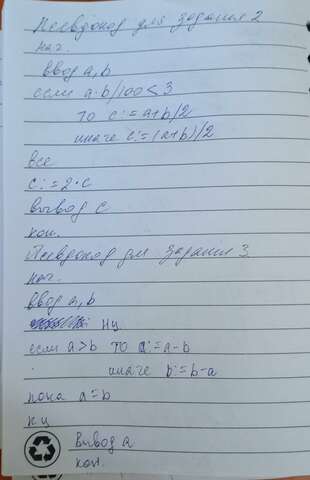 Псевдокод для задания 2
нач.
ввод a, b
если a·b/100 < 3
то c:=a+b/2
иначе c:=(a+b)/2
все
c:=2·c
вывод c
кон.
Псевдокод для задания 3.
нач.
ввод a, b
нц
если a>b то a:=a-b
иначе b:=b-a
пока a=b
кц
Вывод a
кон.